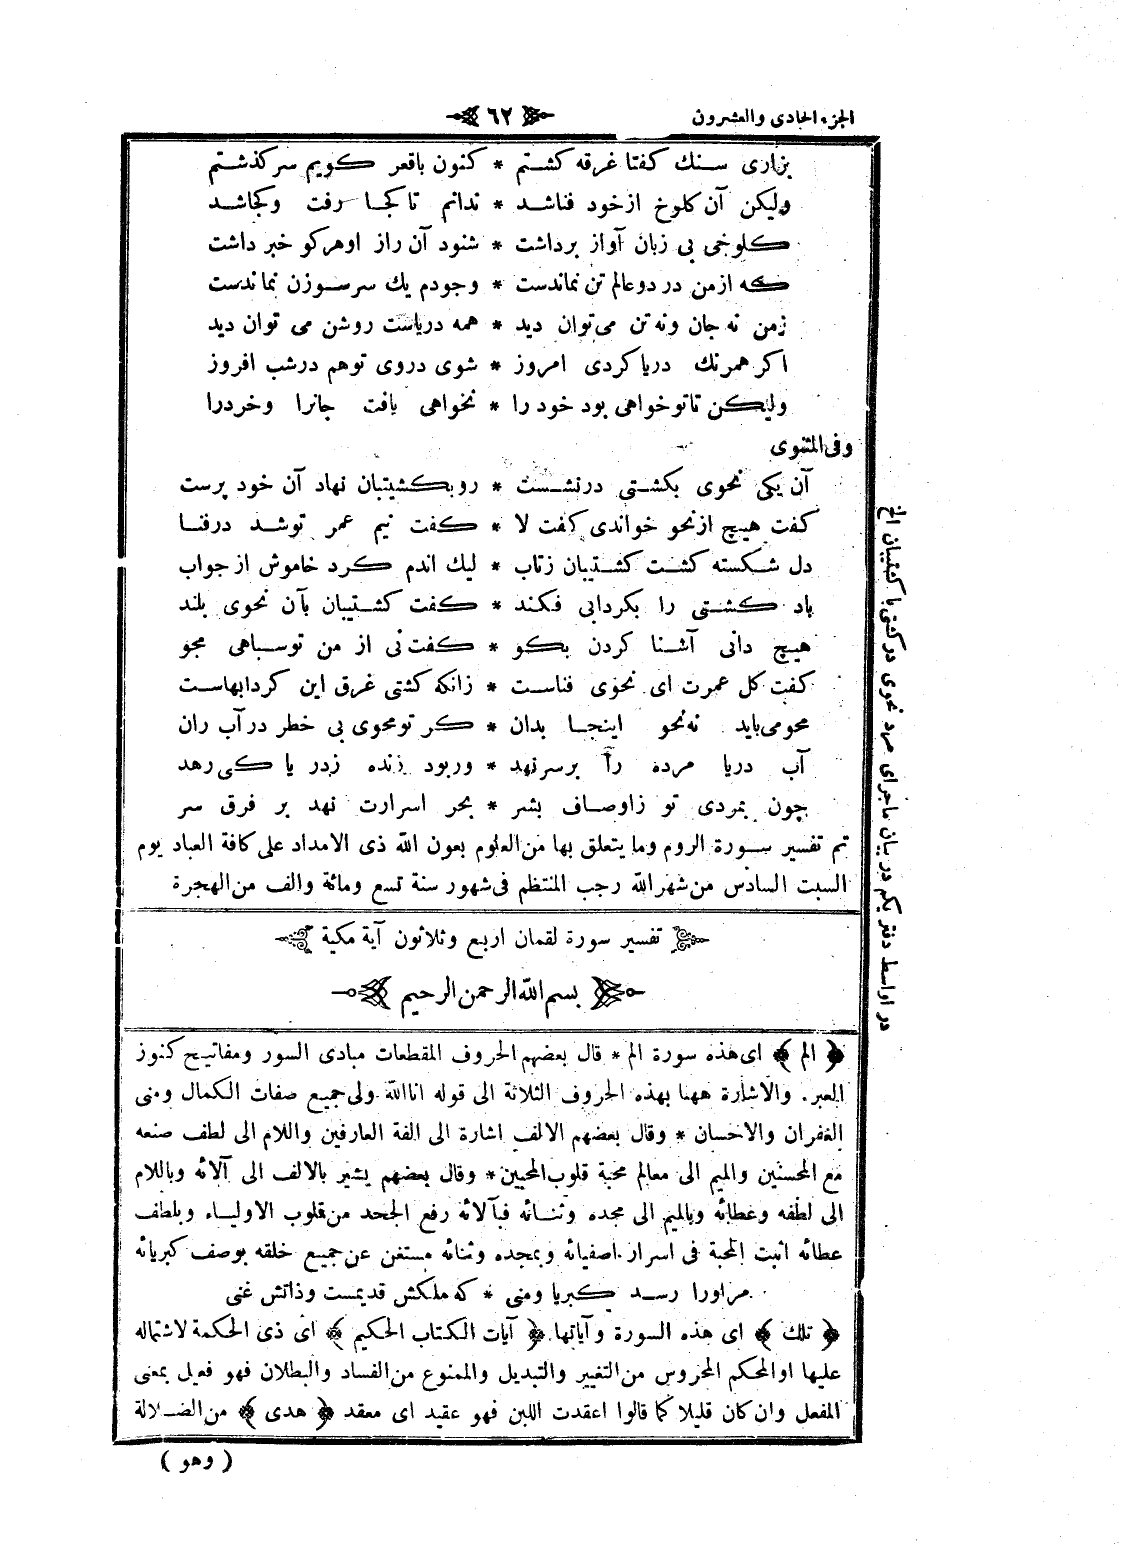 الجزء الحادى والعشرون
٦٢
بزارى سنك كفتا غرقه كشتم * كنون باقعر كويم سركذشتم
وليكن آن كلوخ ازخود فناشد * ندانم تاكجا رفت وكجاشد
كلوخى بى زبان آواز برداشت * شنود آن راز اوهركو خبر داشت
كه ازمن در دوعالم تن نماندست * وجودم يك سرسوزن نماندست
زمن نه جان ونه تن مى‌توان ديد * همه درياست روشن مى توان ديد
اكر همرنك درياكردى امروز * شوى دروى توهم درشب افروز
وليكن تاتوخواهى بود خود را * نخواهى يافت جانرا وخردرا
وفى المثنوى
آن يكى نحوى بكشتى درنشست * روبكشيتبان نهاد آن خود پرست
كفت هيچ ازنحو خواندى كفت لا * كفت نيم عمر توشد درفنا
دل شكسته كشت كشتيبان زتاب * ليك اندم كرد خاموش ازجواب
باد كشتى را بكردابى فكند * كفت كشتيبان بآن نحوى بلند
هيچ دانى آشنا كردن بكو * كفت نى از من توسباهى مجو
كفت كل عمرت اى نحوى فناست * زانكه كشتى غرق اين كردابهاست
محومى‌بايد نه‌نحو اينجا بدان * كر تومحوى بى خطر درآب ران
آب دريا مرده را برسرنهد * وربود زنده زدريا كى‌رهد
چون بمردى تو زاوصاف بشر * بحر اسرارت نهد بر فرق سر
تم تفسير سورة الروم وما يتعلق بها من‌العلوم بعون الله ذى الامداد على كافة العباد يوم
السبت السادس من‌شهرالله رجب المنتظم فى‌شهور سنة تسع ومائة والف من‌الهجرة
تفسير سورة لقمان اربع وثلاثون آية مكية
بسم الله الرحمن الرحيم
﴿ الم ﴾ اى‌هذه سورة الم * قال بعضهم‌الحروف المقطعات مبادى السور ومفاتيح كنوز
العبر. والاشارة ههنا بهذه الحروف الثلاثة الى قوله اناالله ولى‌جميع صفات الكمال ومنى
الغفران والاحسان * وقال بعضهم الالف اشارة الى الفة العارفين واللام الى لطف صنعه
مع المحسنين والميم الى معالم محبة قلوب‌المحبين * وقال بعضهم يشير بالالف الى آلائه وباللام
الى لطفه وعطائه وبالميم الى مجده وثنائه فبآلائه رفع الجحد من‌قلوب الاولياء وبلطف
عطائه اثبت المحبة فى اسرار اصفيائه وبمجده وثنائه مستغن عن‌جميع خلقه بوصف كبريائه
مراورا رسد كبريا ومنى * كه ملكش قديمست وذاتش غنى
﴿ تلك ﴾ اى هذه السورة وآياتها ﴿ آيات الكتاب الحكيم ﴾ اى ذى الحكمة لاشتماله
عليها اوالمحكم المحروس من‌التغيير والتبديل والممنوع من‌الفساد والبطلان فهو فعيل بمعنى
المفعل وان‌كان قليلا كما قالوا اعقدت اللبن فهو عقيد اى معقد ﴿ هدى ﴾ من‌الضلالة
( وهو )
در اواسط دفتر يكم در بيان ماجراى مرد نحوى دركشتى با كشتيبان الخ